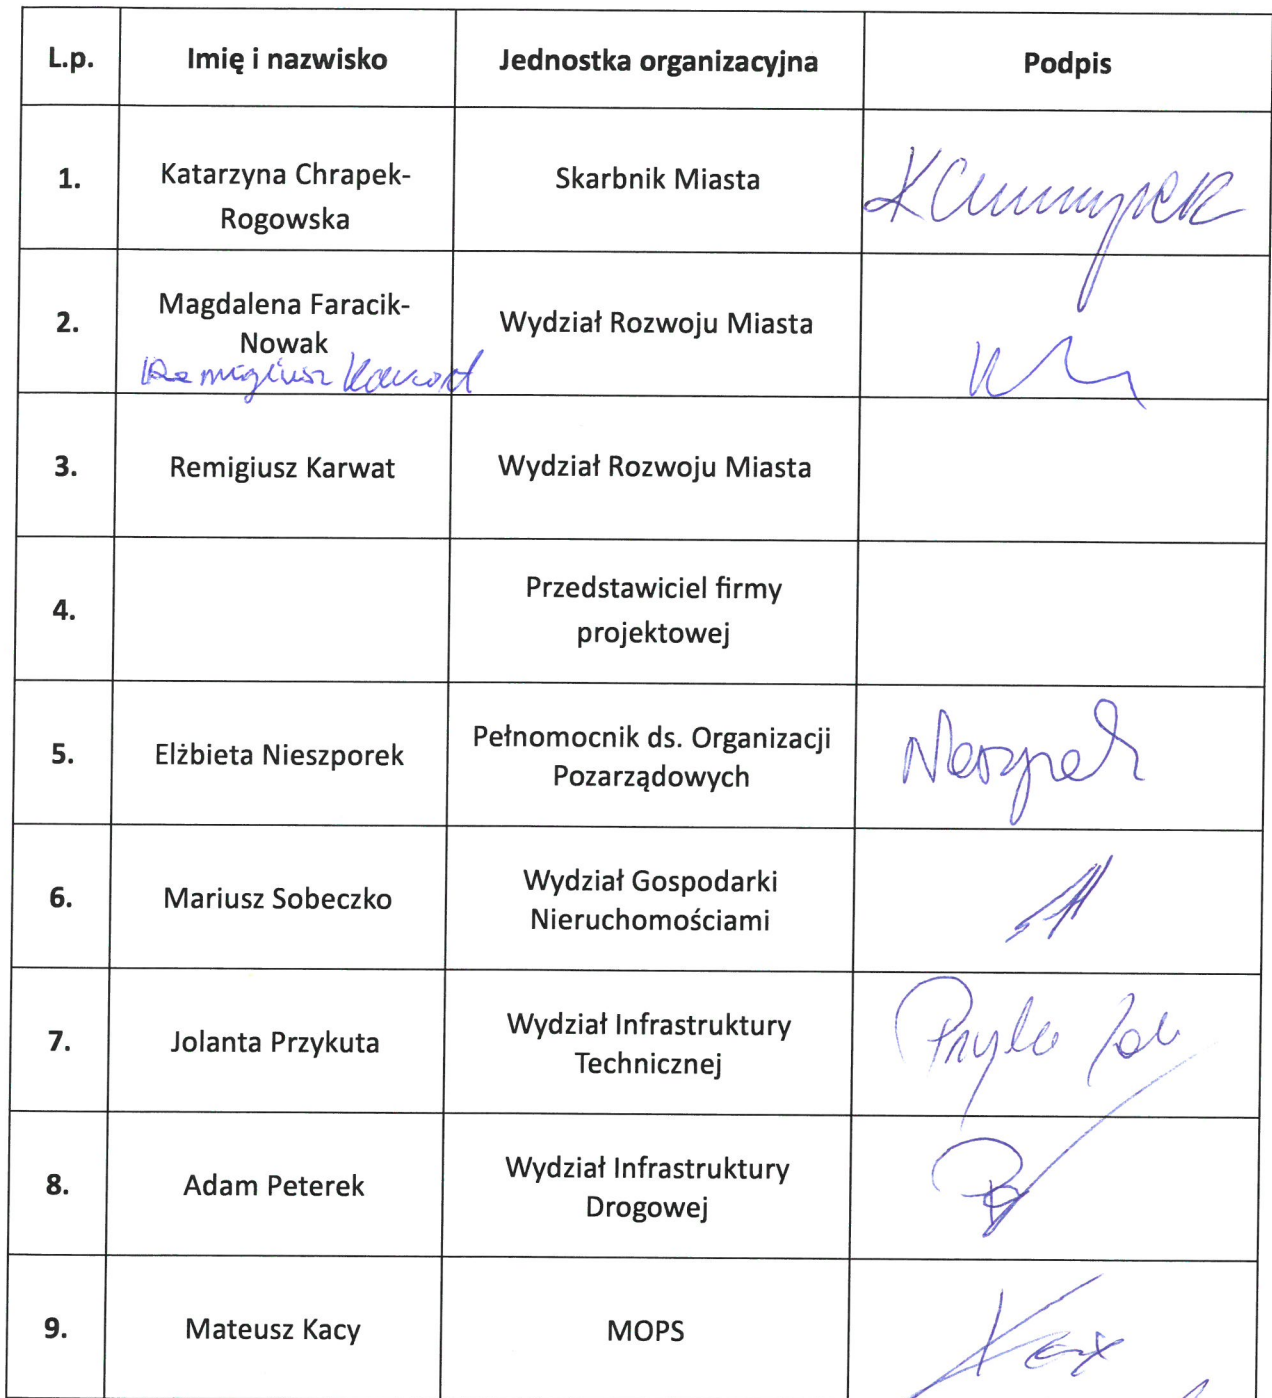 L.p. Imię i nazwisko Jednostka organizacyjna Podpis
1. Katarzyna Chrapek-
Rogowska Skarbnik Miasta
2. Magdalena Faracik-
Nowak Wydział Rozwoju Miasta
Remigiusz Karwat
3. Remigiusz Karwat Wydział Rozwoju Miasta
4. Przedstawiciel firmy
projektowej
5. Elżbieta Nieszporek Pełnomocnik ds. Organizacji
Pozarządowych
6. Mariusz Sobeczko Wydział Gospodarki
Nieruchomościami
7. Jolanta Przykuta Wydział Infrastruktury
Technicznej
8. Adam Peterek Wydział Infrastruktury
Drogowej
9. Mateusz Kacy MOPS